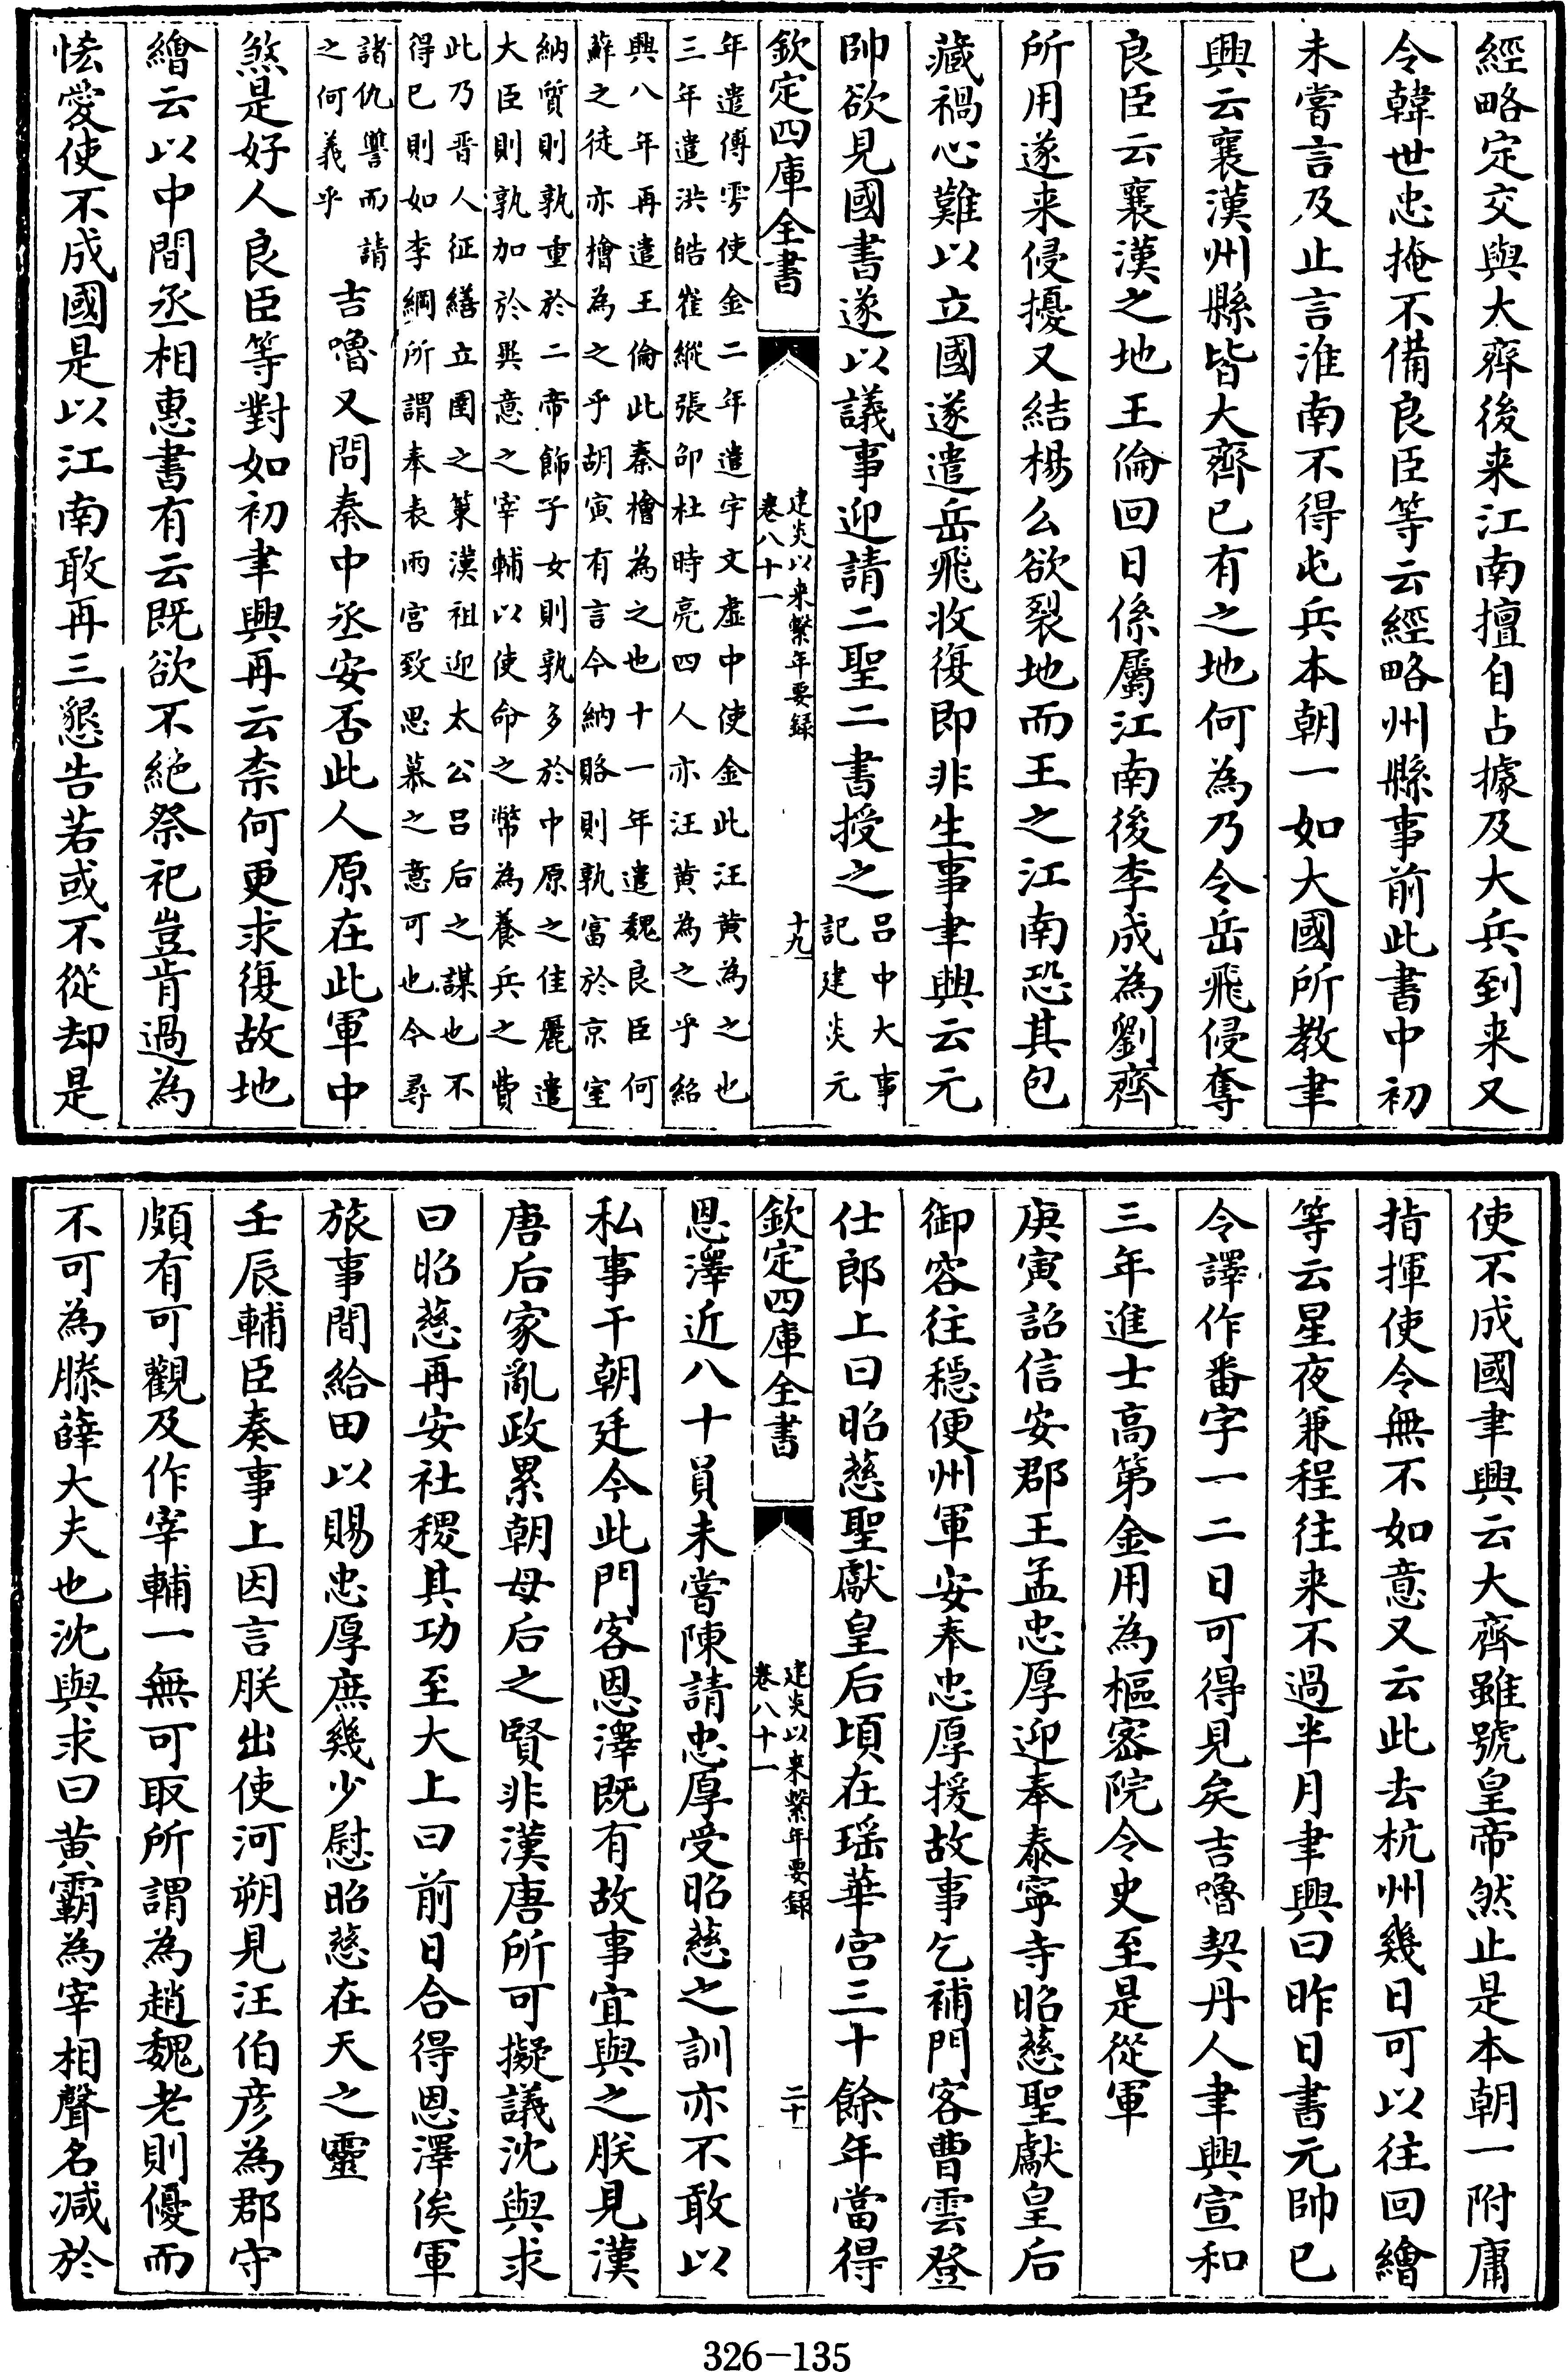 經略定交與大齊後来江南擅自占據及大兵到来又
令韓世忠掩不備良臣等云經略州縣事前此書中初
未嘗言及止言淮南不得屯兵本朝一如大國所教聿
興云襄漢州縣皆大齊已有之地何為乃令岳飛侵奪
良臣云襄漢之地王倫回日係屬江南後李成為劉齊
所用遂来侵擾又結楊么欲裂地而王之江南恐其包
藏禍心難以立國遂遣岳飛收復即非生事聿興云元
帥欲見國書遂以議事迎請二聖二書授之
吕中大事
記建炎元
欽定四庫全書
建炎以来繫年要録
卷八十一
十九
年遣傅雱使金二年遣宇文虚中使金此汪黄為之也
三年遣洪皓崔縱張邵杜時亮四人亦汪黄為之乎紹
興八年再遣王倫此秦檜為之也十一年遣魏良臣何
蘚之徒亦檜為之乎胡寅有言今納賂則孰富於京室
納質則孰重於二帝飾子女則孰多於中原之佳麗遣
大臣則孰加於異意之宰輔以使命之幣為養兵之費
此乃晋人征繕立圉之策漢祖迎太公吕后之謀也不
得已則如李綱所謂奉表兩宫致思慕之意可也今尋
諸仇讐而請
之何義乎
吉嚕又問秦中丞安否此人原在此軍中
煞是好人良臣等對如初聿興再云柰何更求復故地
繪云以中間丞相惠書有云既欲不絶祭祀豈肯過為
恡愛使不成國是以江南敢再三懇告若或不從却是
使不成國聿興云大齊雖號皇帝然止是本朝一附庸
指揮使令無不如意又云此去杭州幾日可以往回繪
等云星夜兼程往来不過半月聿興曰昨日書元帥已
令譯作番字一二日可得見矣吉嚕契丹人聿興宣和
三年進士高第金用為樞宻院令史至是從軍
庚寅詔信安郡王孟忠厚迎奉泰寧寺昭慈聖獻皇后
御容往穏便州軍安奉忠厚援故事乞補門客曹雲登
仕郎上曰昭慈聖獻皇后頃在瑶華宫三十餘年當得
欽定四庫全書
建炎以来繫年要録
卷八十一
二十
恩澤近八十員未嘗陳請忠厚受昭慈之訓亦不敢以
私事干朝廷今此門客恩澤既有故事宜與之朕見漢
唐后家亂政累朝母后之賢非漢唐所可擬議沈與求
曰昭慈再安社稷其功至大上曰前日合得恩澤俟軍
旅事間給田以賜忠厚庶幾少慰昭慈在天之靈
壬辰輔臣奏事上因言朕出使河朔見汪伯彦為郡守
頗有可觀及作宰輔一無可取所謂為趙魏老則優而
不可為滕薛大夫也沈與求曰黄霸為宰相聲名减於
326-135